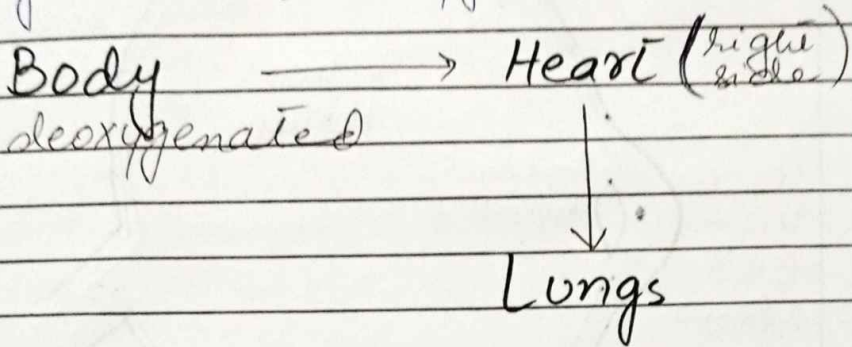 Body → Heart (right side)
deoxygenated
Lungs